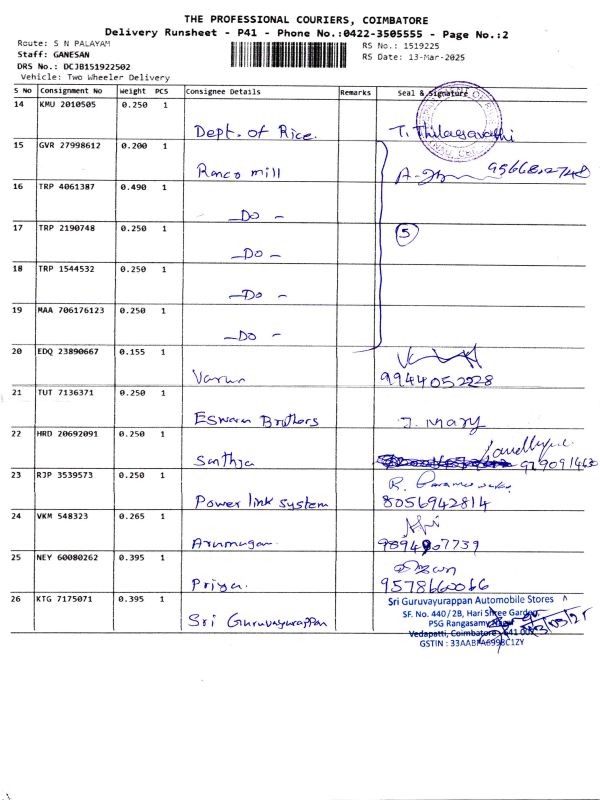 THE PROFESSIONAL COURIERS, COIMBATORE
Delivery Runsheet - P41 - Phone No.:0422-3505555 - Page No.:2
Route: S N PALAYAM
RS No.: 1519225
Staff: GANESAN
RS Date: 13-Mar-2025
DRS No.: DCJB151922502
Vehicle: Two Wheeler Delivery
S No Consignment No Weight PCS Consignee Details Remarks Seal & Signature
14 KMU 2010505 0.250 1
Dept. of Rice. T. Thilagavathi
15 GVR 27998612 0.200 1
Ranco mill
16 TRP 4061387 0.490 1
-Do-
17 TRP 2190748 0.250 1
-Do- 5
18 TRP 1544532 0.250 1
-Do-
19 MAA 706176123 0.250 1
-Do-
20 EDQ 23890667 0.155 1
Varun 9944052228
21 TUT 7136371 0.250 1
Eswaran Brothers J. Mary
22 HRD 20692091 0.250 1
Santhya
23 RJP 3539573 0.250 1
Power link system 8056942814
24 VKM 548323 0.265 1
Arumugan
25 NEY 60080262 0.395 1
Priya 9578660066
26 KTG 7175071 0.395 1
Sri Guruvayurappan
Sri Guruvayurappan Automobile Stores
SF. No. 440/2B, Hari Shree Garden,
PSG Rangasamy Nagar
Vedapatti, Coimbatore
GSTIN : 33AABFA6998C1ZY